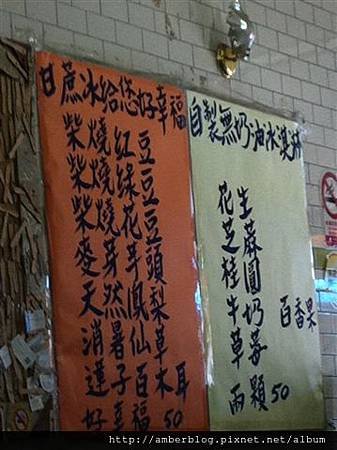 甘蔗冰給您好幸福
柴燒紅豆
柴燒綠豆
柴燒花豆
麥芽芋頭
天然鳳梨
消暑仙草
蓮子百木耳
好幸福 50
自製無奶油冰淇淋
花生
芝麻
桂圓
牛奶 百香果
草莓
兩顆50
http://amberblog.pixnet.net/album